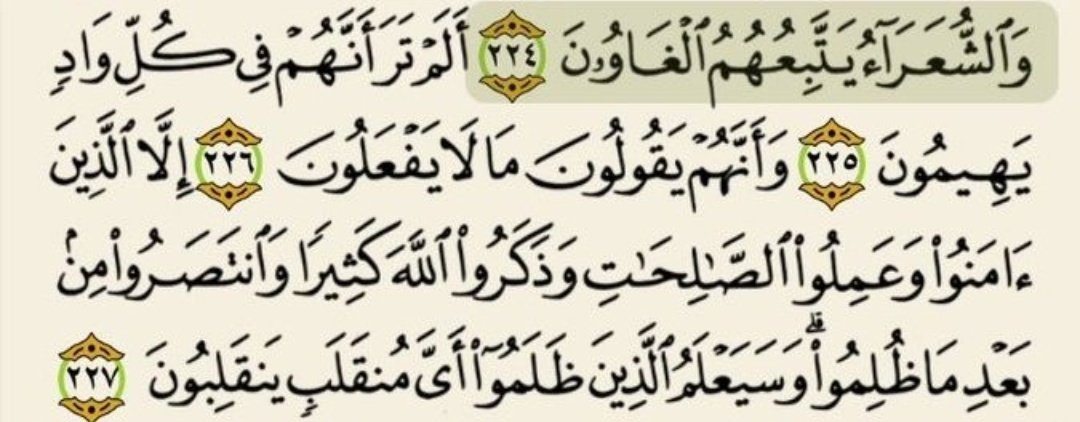 وَٱلشُّعَرَآءُ يَتَّبِعُهُمُ ٱلْغَاوُۥنَ ٢٢٤ أَلَمْ تَرَ أَنَّهُمْ فِي كُلِّ وَادٍ
يَهِيمُونَ ٢٢٥ وَأَنَّهُمْ يَقُولُونَ مَا لَا يَفْعَلُونَ ٢٢٦ إِلَّا ٱلَّذِينَ
ءَامَنُوا۟ وَعَمِلُوا۟ ٱلصَّـٰلِحَـٰتِ وَذَكَرُوا۟ ٱللَّهَ كَثِيرًا وَٱنتَصَرُوا۟ مِنۢ
بَعْدِ مَا ظُلِمُوا۟ ۗ وَسَيَعْلَمُ ٱلَّذِينَ ظَلَمُوٓا۟ أَىَّ مُنقَلَبٍ يَنقَلِبُونَ ٢٢٧